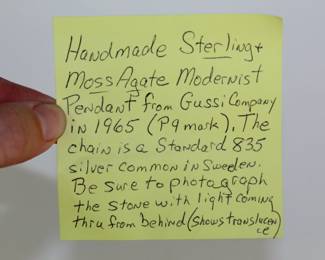 Handmade Sterling +
Moss Agate Modernist
Pendant from Gussi Company
in 1965 (P9 mark). The
chain is a Standard 835
silver common in Sweden.
Be sure to photograph
the stone with light coming
thru from behind (shows translucen
ce)